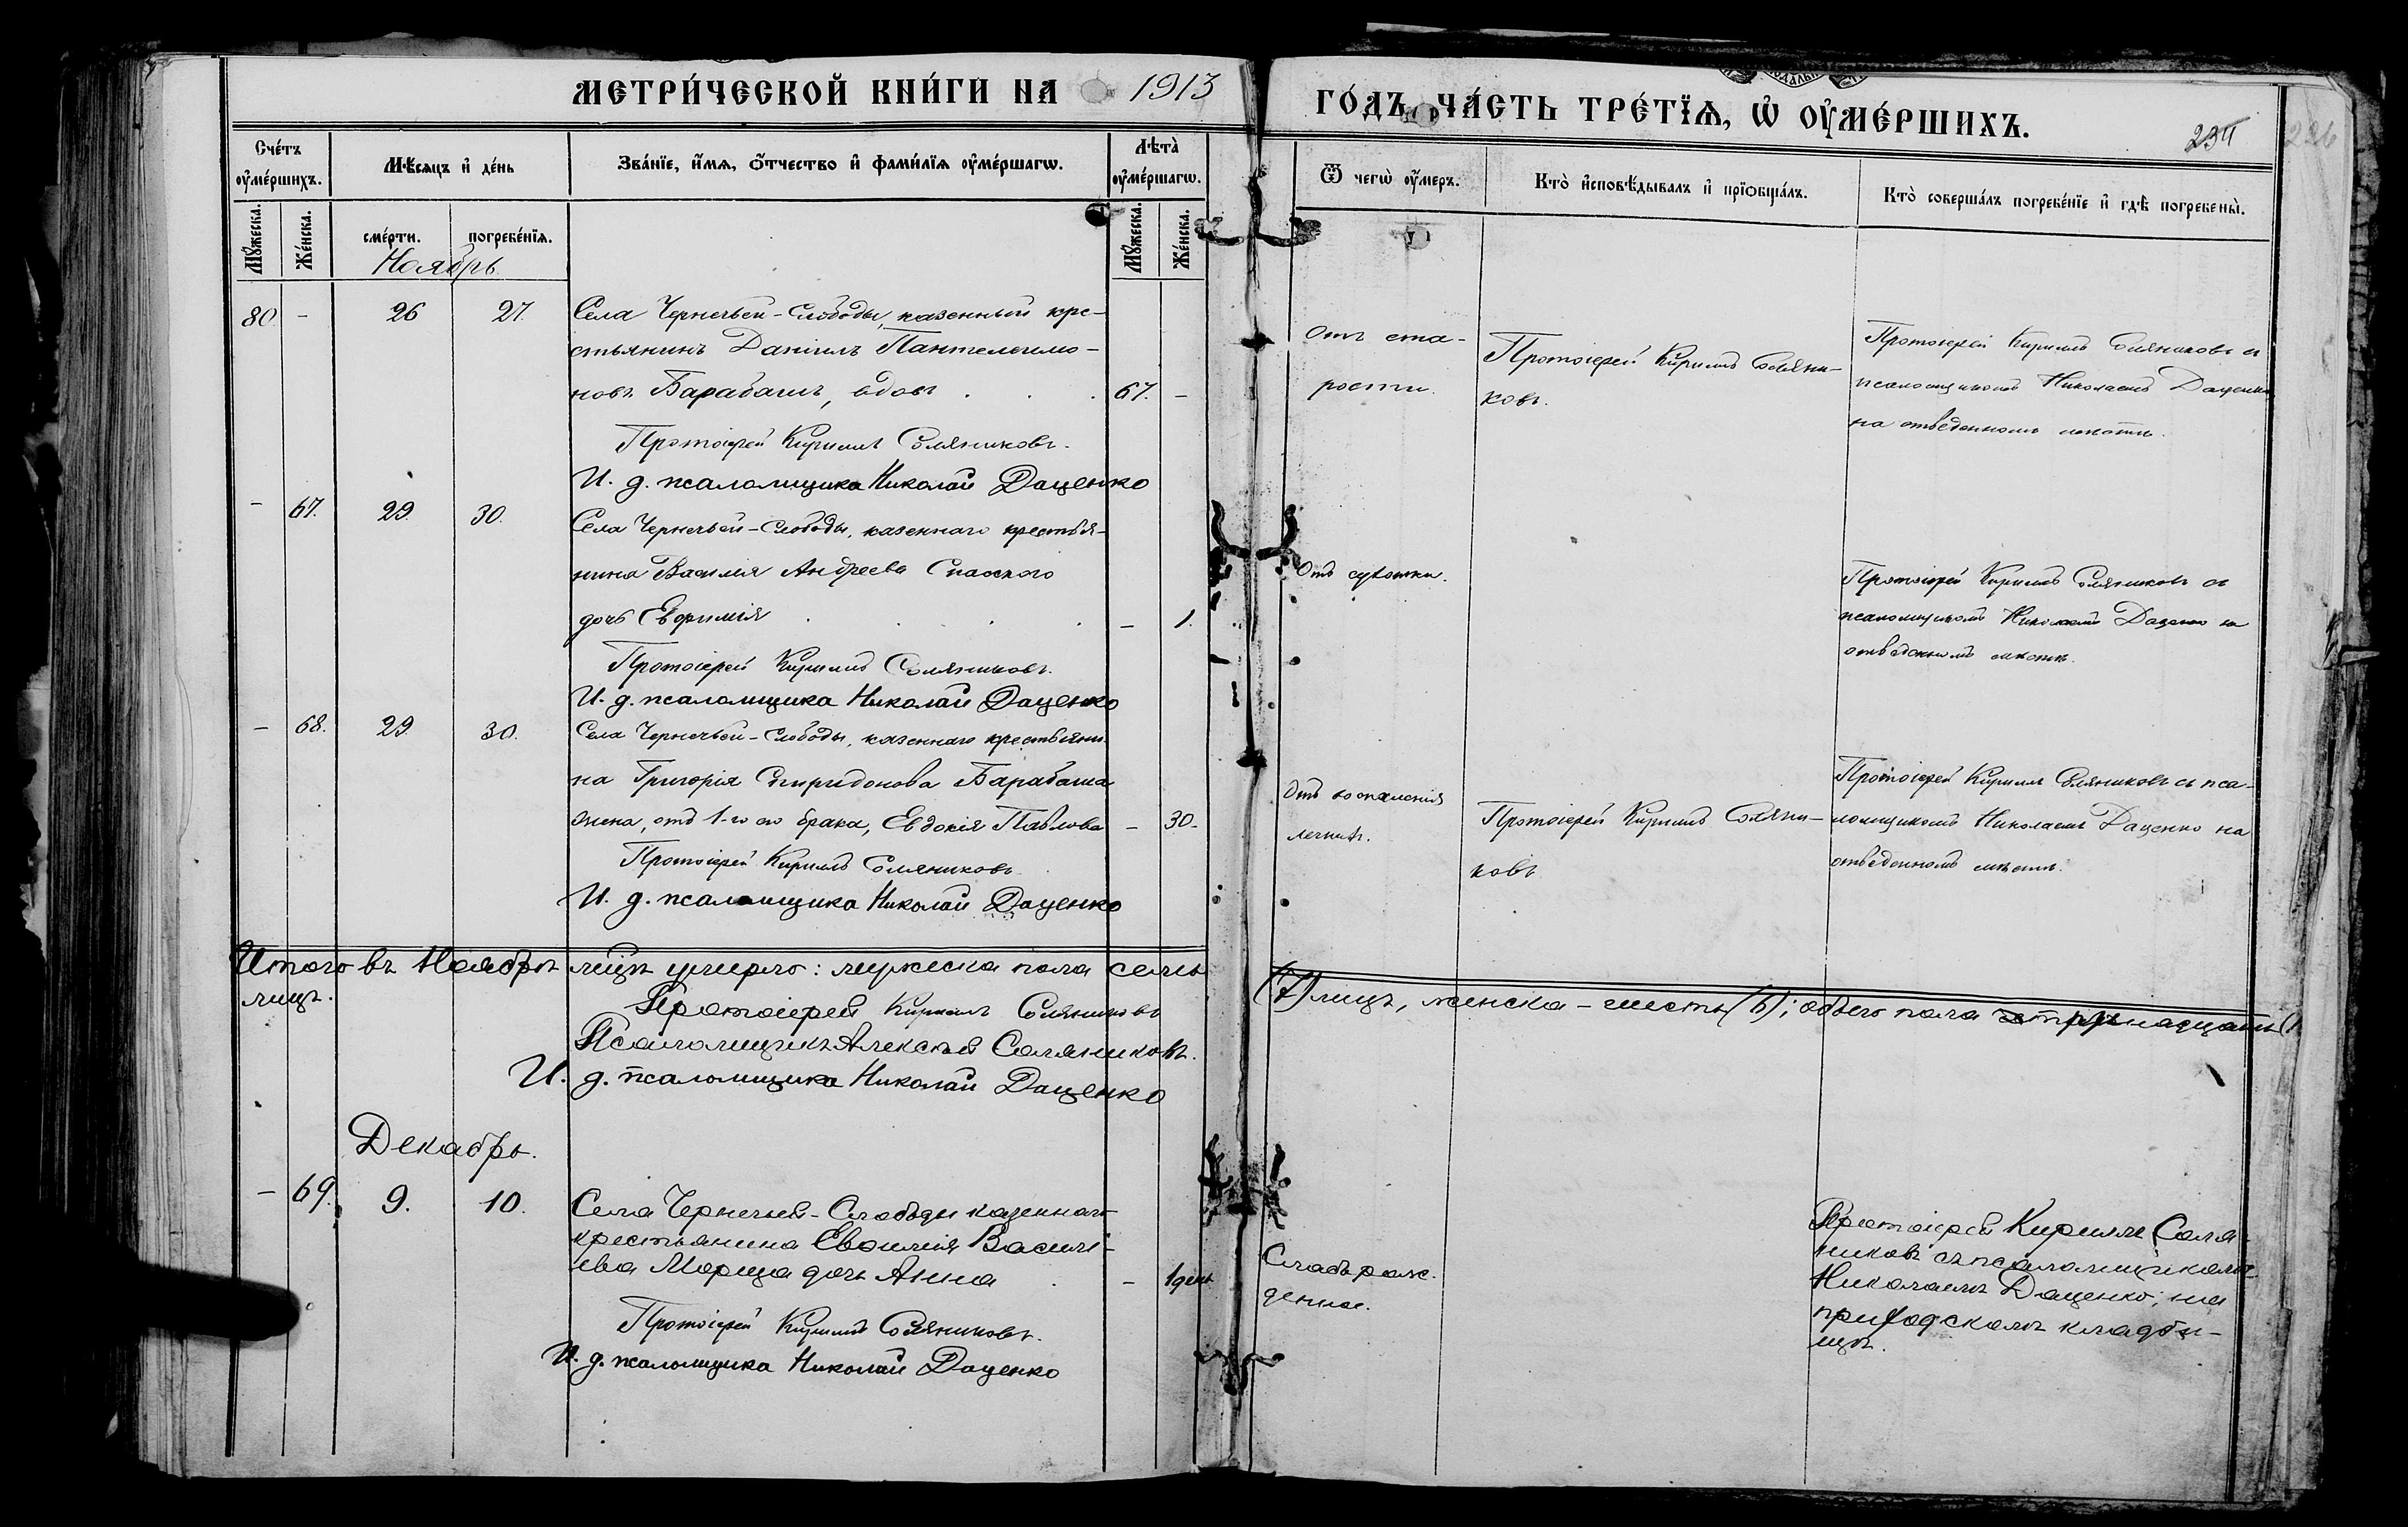 МЕТРИ́ЧЕСКОЙ КНИ́ГИ НА 1913
ГО́ДЪ, ЧА́СТЬ ТРЕ́ТЇѦ, Ѡ҆ ОУ҆МЕ́РШИХЪ.
234
226
Сче́тъ оу҆ме́ршихъ.
Мѣ́сяцъ и҆ де́нь
Зва́нїе, и҆́мѧ, ѻ҆́тчество и҆ фами́лїѧ оу҆ме́ршагѡ.
Лѣта̀ оу҆ме́ршагѡ.
Ѿ чегѡ̀ оу҆́меръ.
Кто̀ и҆сповѣ́дывалъ и҆ прїѻбща́лъ.
Кто̀ соверша́лъ погребе́нїе и҆ гдѣ̀ погребены̀.
Мꙋ́жеска.
Же́нска.
сме́рти.
погребе́нїѧ.
Мꙋ́жеска.
Же́нска.
Ноябрь
80. - 26 27.
Села Чернечьей-Слободы, казенный кре-
стьянинъ Данiилъ Пантелеимо-
новъ Барабашъ, вдовъ . . . 67. -
Протоiерей Кириллъ Соляниковъ.
И. д. псаломщика Николай Даценко
Отъ ста-
рости.
Протоiерей Кириллъ Соляни-
ковъ.
Протоiерей Кириллъ Соляниковъ съ
псаломщикомъ Николаемъ Даценко
на отведенномъ мѣстѣ.
- 67. 29. 30.
Села Чернечьей-Слободы, казеннаго крестья-
нина Василiя Андреева Спасского
дочь Евфимiя . . . . - 1.
Протоiерей Кириллъ Соляниковъ.
И. д. псаломщика Николай Даценко
Отъ сухотки.
Протоiерей Кириллъ Соляниковъ съ
псаломщикомъ Николаемъ Даценко на
отведенномъ мѣстѣ.
- 68. 29. 30.
Села Чернечьей-Слободы, казеннаго крестьяни-
на Григорiя Спиридонова Барабаша
жена, отъ 1-го его брака, Евдокiя Павлова - 30.
Протоiерей Кириллъ Соляниковъ
И. д. псаломщика Николай Даценко
Отъ воспаленiя
легкихъ.
Протоiерей Кириллъ Соляни-
ковъ
Протоiерей Кириллъ Соляниковъ съ пса-
ломщикомъ Николаемъ Даценко на
отведенномъ мѣстѣ.
Итого въ Ноябрѣ мѣцѣ умерло: мужеска пола семь
(7) лицъ, женска - шесть (6); обоего пола тринадцать (1
лицъ.
Протоiерей Кириллъ Соляниковъ
Псаломщикъ Алексѣй Соляниковъ.
И. д. псаломщика Николай Даценко
Декабрь.
- 69. 9. 10.
Села Чернечьей-Слободы казеннаго
крестьянина Евѳимiя Василi-
ева Морща дочь Анна . - 1 день
Протоiерей Кириллъ Соляниковъ.
И. д. псаломщика Николай Даценко
Слабо рож-
денная.
Протоiерей Кириллъ Соля-
никовъ съ псаломщикомъ
Николаемъ Даценко; на
приходскомъ кладби-
щѣ.